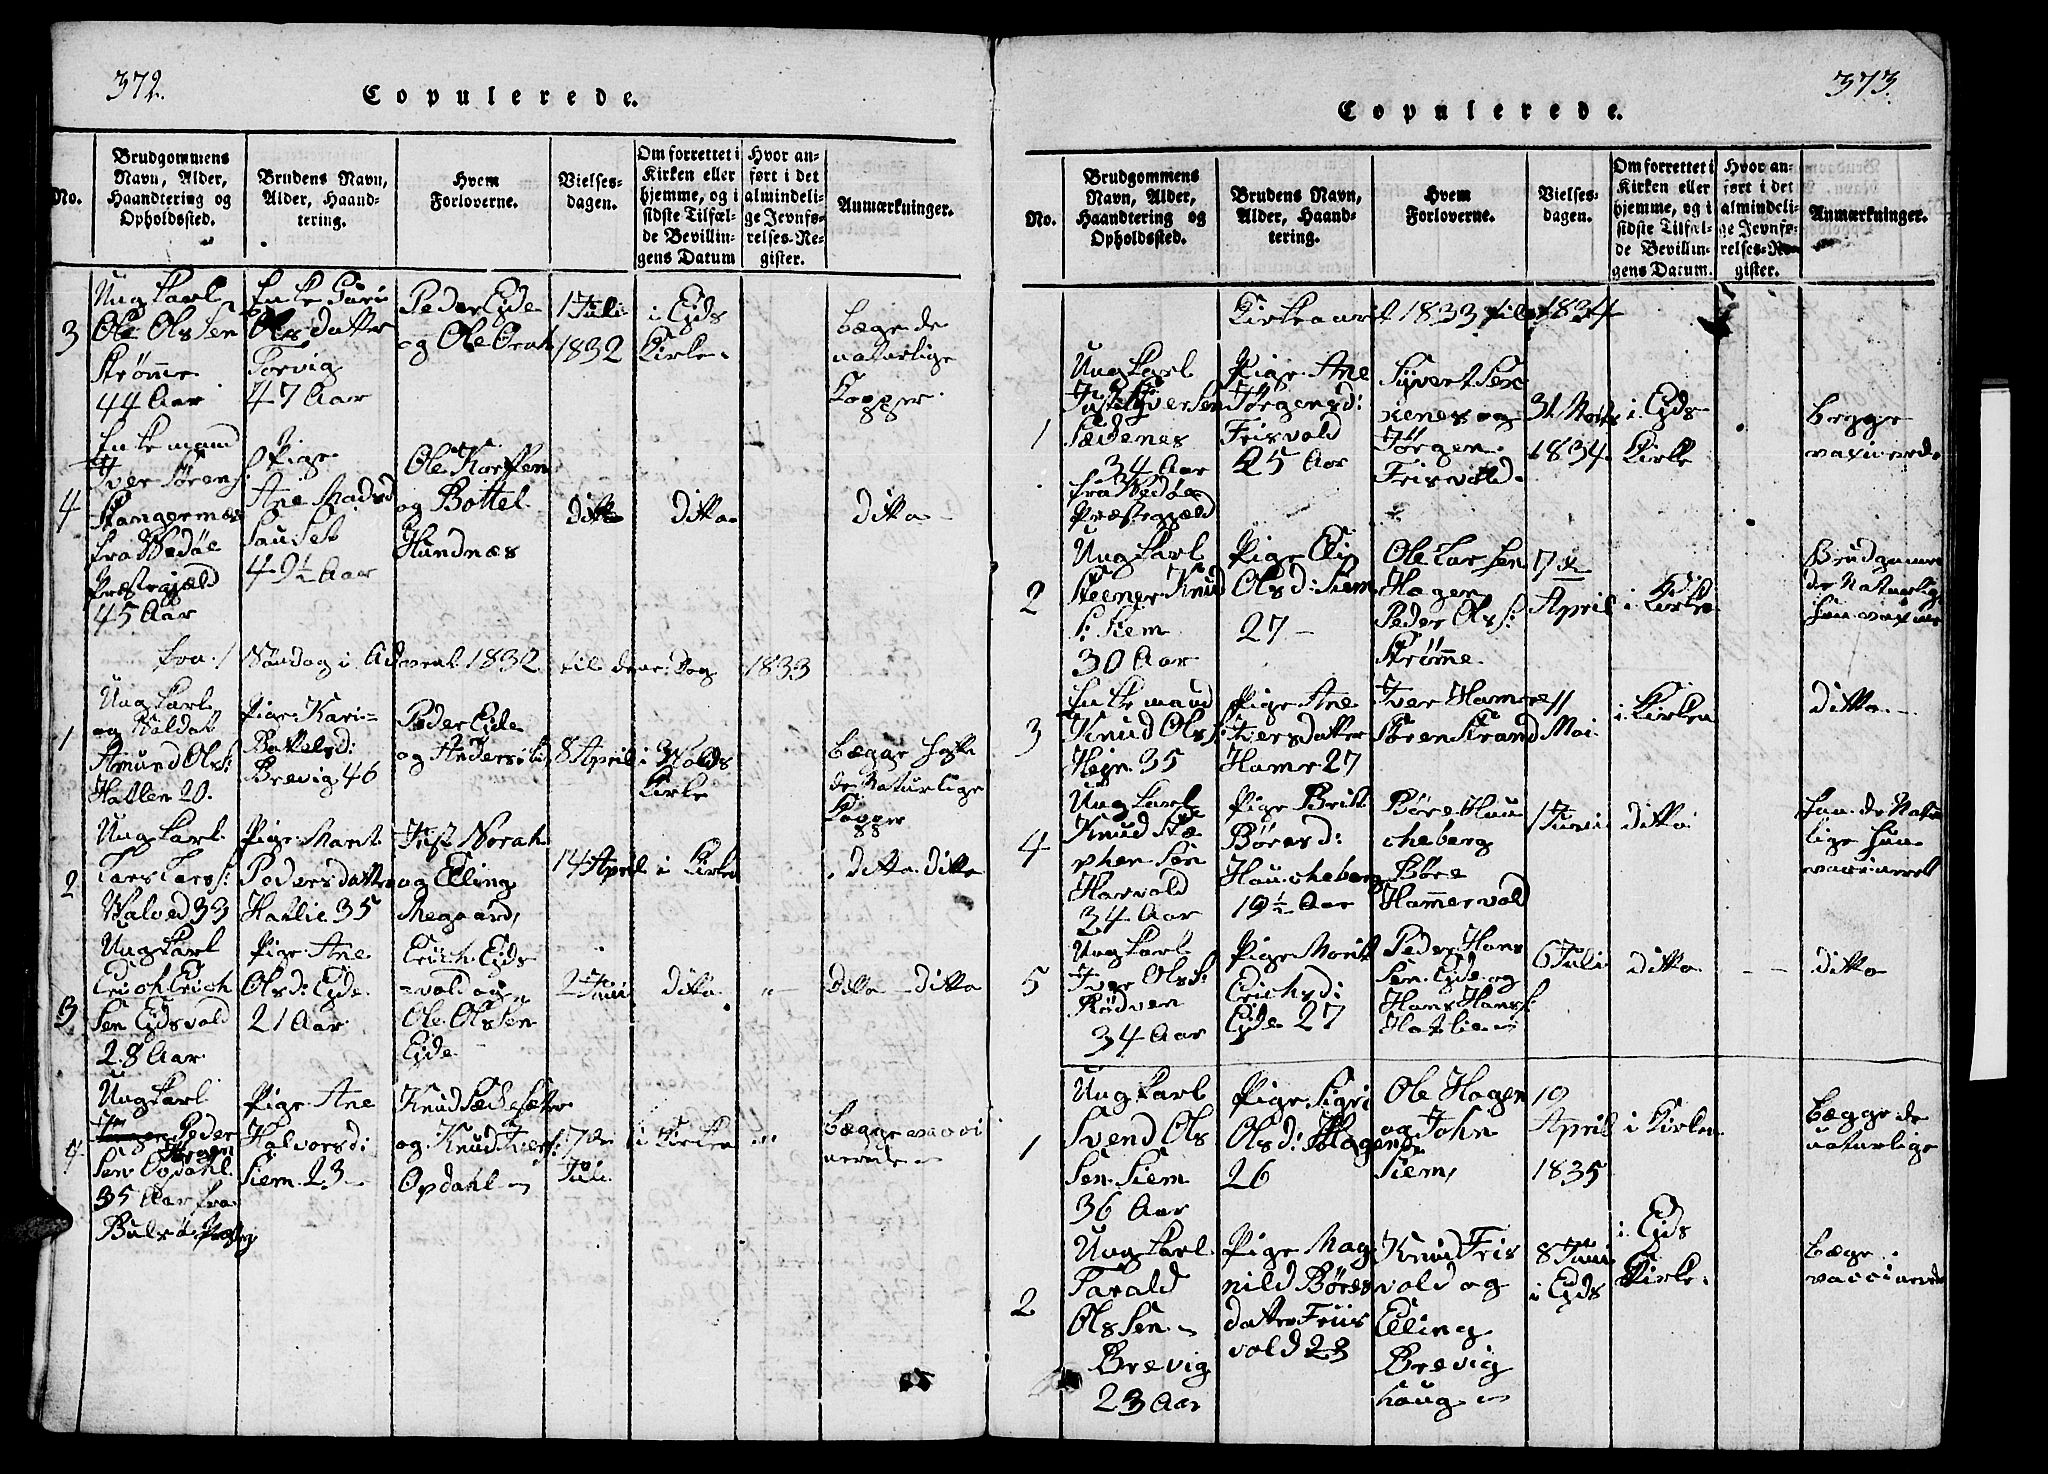 372.
Copulerede.
No.
Brudgommens
Navn, Alder,
Haandtering og
Opholdssted.
Brudens Navn,
Alder, Haand-
tering.
Hvem
Forloverne.
Vielses-
dagen.
Om forrettet i
Kirken eller
hjemme, og i
sidste Tilfæl-
de Bevillin-
gens Datum
Hvor an-
ført i det
almindeli-
ge Jevnfø-
relses-Re-
gister.
Anmærkninger.
3
Ungkarl
Ole Olssen
Strømme
44 Aar
Enke Guri
Olsdatter
Torvig
47 Aar
Peder Ejde
og Ole Orah
1 Juli
1832
i Ejds
Kirke
bæge de
naturlige
Kopper
4
Enkemand
Iver Sørens:
Stangernæs
fra Wedøe
Præstegjæld
45 Aar
Pige
Ane Madsd
Sauset
49½ Aar
Ole Torffen
og Bottel
Hundnæs
ditto
ditto
ditto
fra 1 Søndag i Advent 1832 til den Dag 1833
1
Ungkarl
og Soldat
Amund Ols:
Hatlen 20.
Pige Kari
Bottelsd:
Brevig 46
Peder Ejde
og Anders
8 April
i Wolds
Kirke
bægge hafte
de Naturlige
Kopper
2
Ungkarl
Lars Larss:
Walved 33
Pige Marit
Pedersdatter
Hatlie 35
Just Norah
og Elling
Megaard,
14 April
i Kirken
ditto ditto
3
Ungkarl
Erich Erich
sen Ejdsvold
28 Aar
Pige Ane
Olsd: Ejde
21 Aar
Erich Ejds
vold og
Ole Olssen
Ejde
2 Juni
ditto
ditto ditto
4
Ungkarl
Peder
Jørgen
sen Opdahl
35 Aar fra
Bulsø Præstg
Pige Ane
Halvorsd:
Siem 23
Knud Sæchesæter
og Knud Ivers:
Opdahl
17de
Juli
i Kirken
Bægge vacci
nerede
373.
Copulerede.
No.
Brudgommens
Navn, Alder,
Haandtering og
Opholdssted.
Brudens Navn,
Alder, Haand-
tering.
Hvem
Forloverne.
Vielses-
dagen.
Om forrettet i
Kirken eller
hjemme, og i
sidste Tilfæl-
de Bevillin-
gens Datum.
Hvor an-
ført i det
almindeli-
ge Jevnfø-
relses-Re-
gister.
Anmærkninger.
Kirkeaaret 1833 til 1834
1
Ungkarl
Iversen
Sædenes
34 Aar
fra Wedøe
Præstegjæld
Pige Ane
Jørgensd:
Frisvold
25 Aar
Sivert Sex
og
Jørgen
Frisvold
31 Marts
1834
i Ejds
Kirke
begge
vaxinerede
2
Ungkarl
Steener Knud
s: Siem
30 Aar
Pige Eli
Olsd: Siem
27
Ole Larssen
Hagen
Peder Olss:
Strømme
7de
April
i Kirken
Brudgomme
de Naturlige
hun vaxine
3
Enkemand
Knud Olss:
Hejn 35
Pige Ane
Iversdatter
Hamre 27
Iver Hamre
Søren Strand
11
Mai
i Kirken
ditto
4
Ungkarl
Knud Ste
phensen
Harvold
34 Aar
Pige Brit
Børesd:
Haucheberg
19½ Aar
Børe Hau
cheberg
Børe
Hammervold
1 Juni
ditto
han de Natu
lige hun
vaccineret
5
Ungkarl
Iver Olss:
Rødven
34 Aar
Pige Marit
Erichsd:
Ejde 27
Peder Hans
sen Ejde og
Hans Hanss:
Hatlie
6 Juli
ditto
ditto
1
Ungkarl
Svend Ols
sen Siem
36 Aar
Pige Sigri
Olsd: Hagen
26
Ole Hagen
og John
Siem,
19
April
1835
i Kirken
bægge de
naturlige
2
Ungkarl
Tarald
Olssen
Brevig
23 Aar
Pige Mag
nild Børes
datter Friis
vold 23
Knud Fris
vold og
Elling
Brevig
haug
8 Juni
i Ejds
i Ejds
Kirke
bæge
vaccinerede